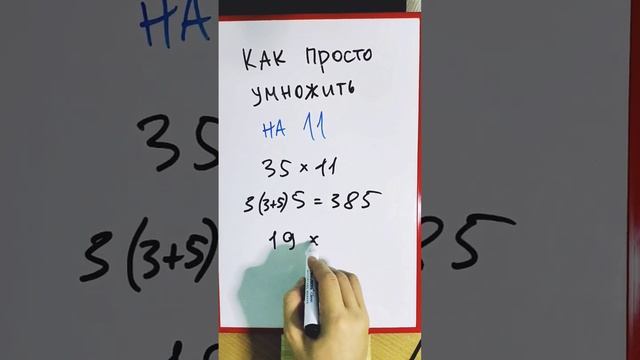 КАК ПРОСТО
УМНОЖИТЬ
НА 11
35 × 11
3(3+5)5 = 385
19 ×